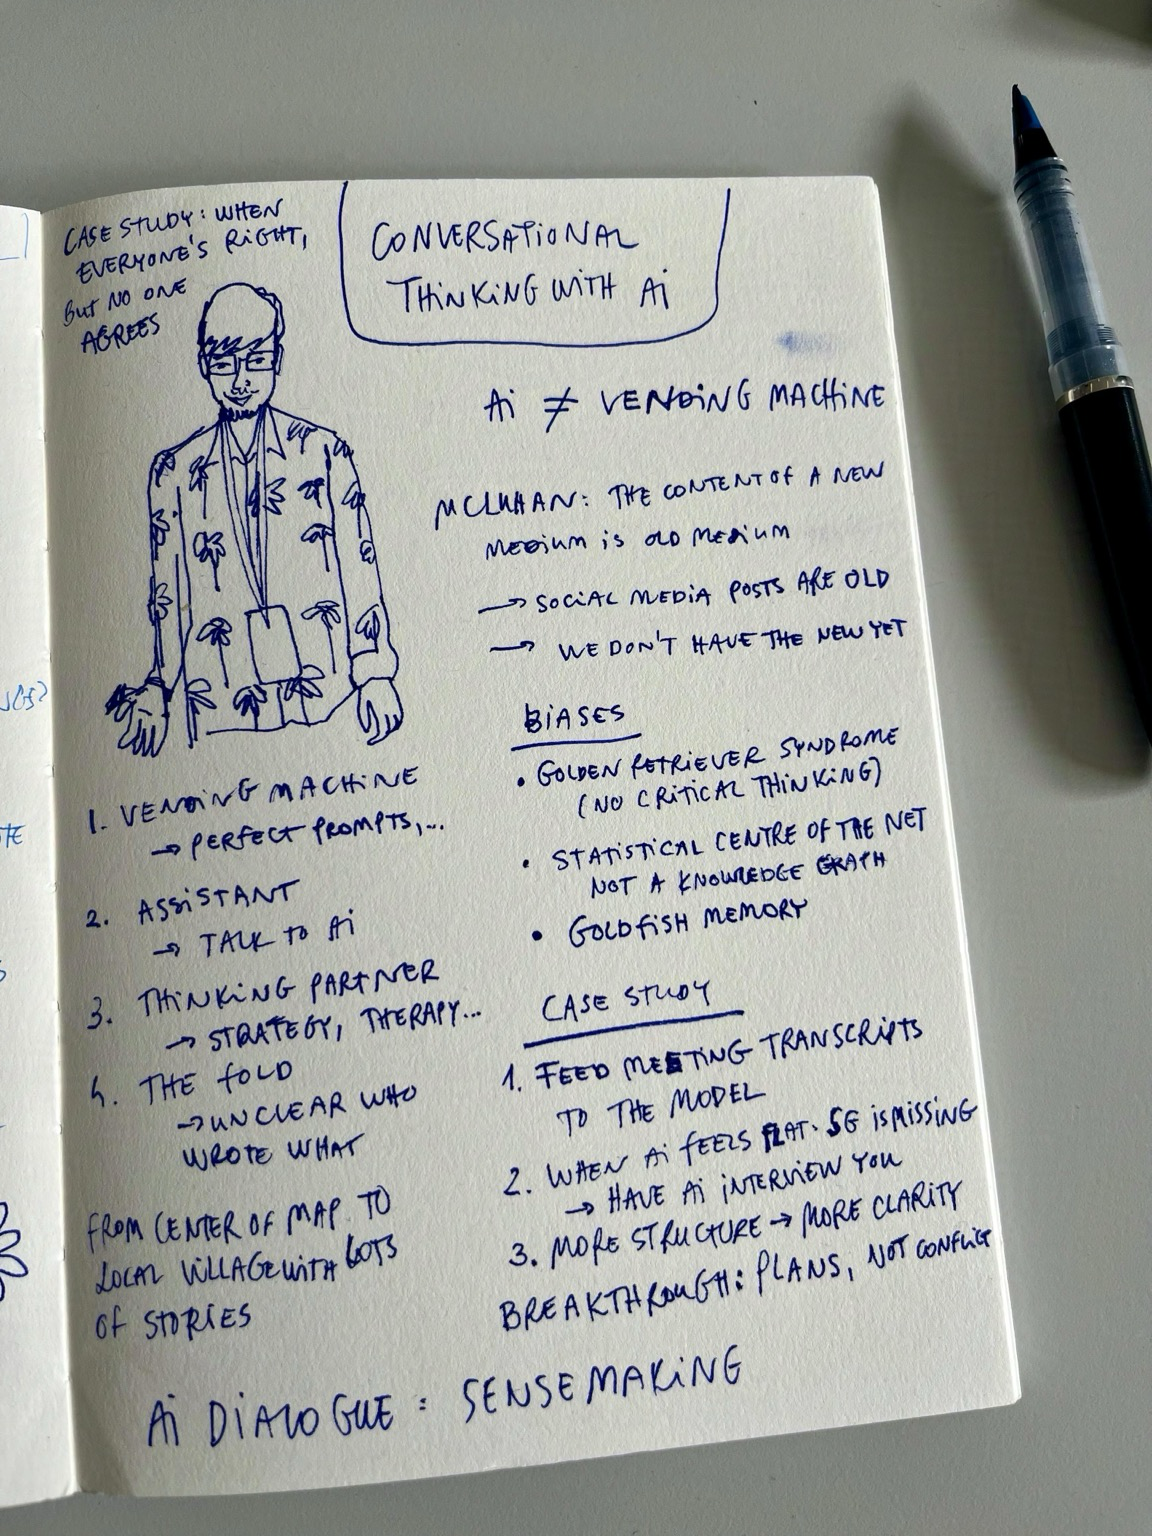 CASE STUDY: WHEN
EVERYONE'S RIGHT,
BUT NO ONE
AGREES
CONVERSATIONAL
THINKING WITH Ai
Ai ≠ VENDING MACHINE
MCLUHAN: THE CONTENT OF A NEW
MEDIUM iS OLD MEDIUM
→ SOCIAL MEDIA POSTS ARE OLD
→ WE DON'T HAVE THE NEW YET
BIASES
• GOLDEN RETRIEVER SYNDROME
(NO CRITICAL THINKING)
• STATISTICAL CENTRE OF THE NET
NOT A KNOWLEDGE GRAPH
• GOLDFISH MEMORY
CASE STUDY
1. FEED MEETING TRANSCRIPTS
TO THE MODEL
2. WHEN Ai FEELS FLAT. SG iS MISSING
→ HAVE Ai iNTERVIEW YOU
3. MORE STRUCTURE → MORE CLARITY
BREAKTHROUGH: PLANS, NOT CONFLICT
1. VENDING MACHINE
→ PERFECT PROMPTS,...
2. ASSISTANT
→ TALK TO Ai
3. THINKING PARTNER
→ STRATEGY, THERAPY...
4. THE FOLD
→ UNCLEAR WHO
WROTE WHAT
FROM CENTER OF MAP TO
LOCAL VILLAGE WITH LOTS
OF STORIES
Ai DIALOGUE: SENSEMAKING